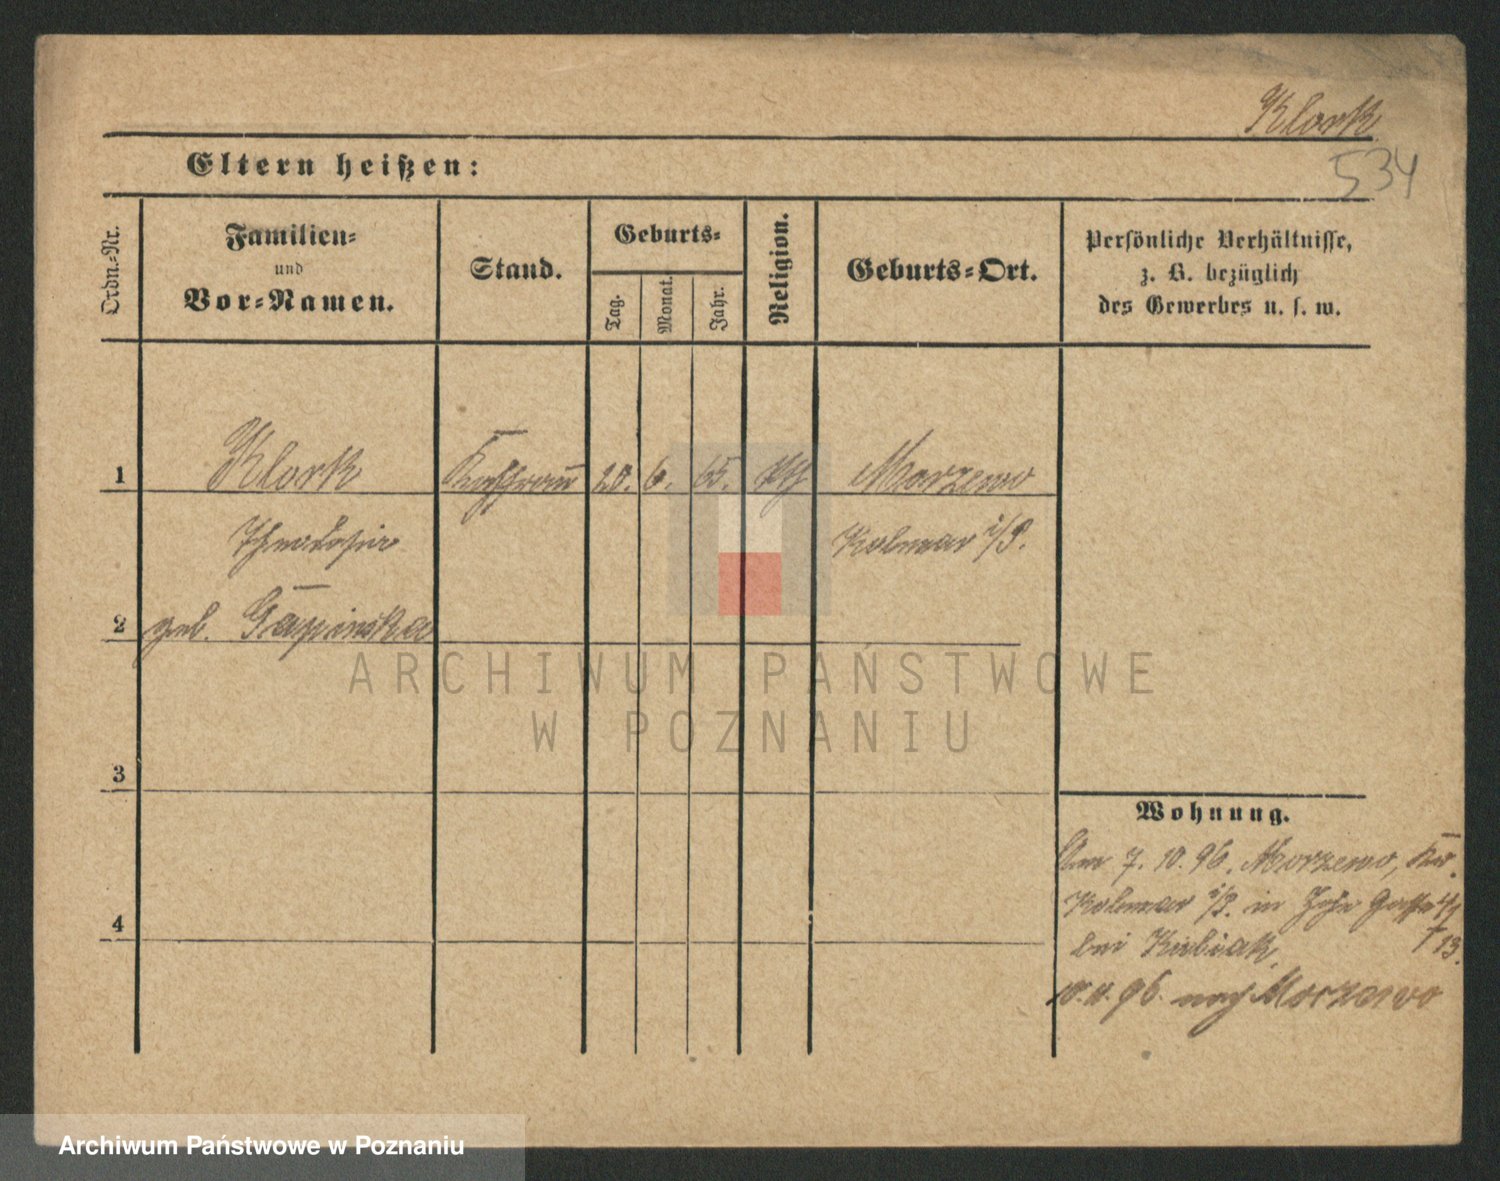 Klork
534
Eltern heißen:
Ordn.-Nr.
Familien-
und
Vor-Namen.
Stand.
Geburts-
Tag.
Monat.
Jahr.
Religion.
Geburts-Ort.
Persönliche Verhältnisse,
z. B. bezüglich
des Gewerbes u. s. w.
1 Klork 20. 6. 65. Morzewo
Kolmar i/P.
2 geb.
3
4
Wohnung.
Am 7. 10. 96. Morzewo, Kr.
Kolmar i/P. in
bei Kubiak 13.
10.11.96. nach Morzewo
ARCHIWUM PAŃSTWOWE
W POZNANIU
Archiwum Państwowe w Poznaniu